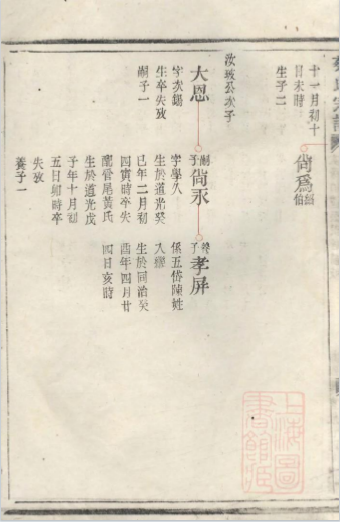 十一月初十
日未時
生子二
尙爲 紹伯
汝玻公次子
大恩
字次錫
生卒失攷
嗣子一
嗣子 尙永
字學久
生於道光癸
巳年二月初
四寅時卒失
配管尾黃氏
生於道光戊
子年十月初
五日卯時卒
失攷
養子一
養子 孝屏
係五岱陳姓
入繼
生於同治癸
酉年四月廿
四日亥時
上海圖
書館藏